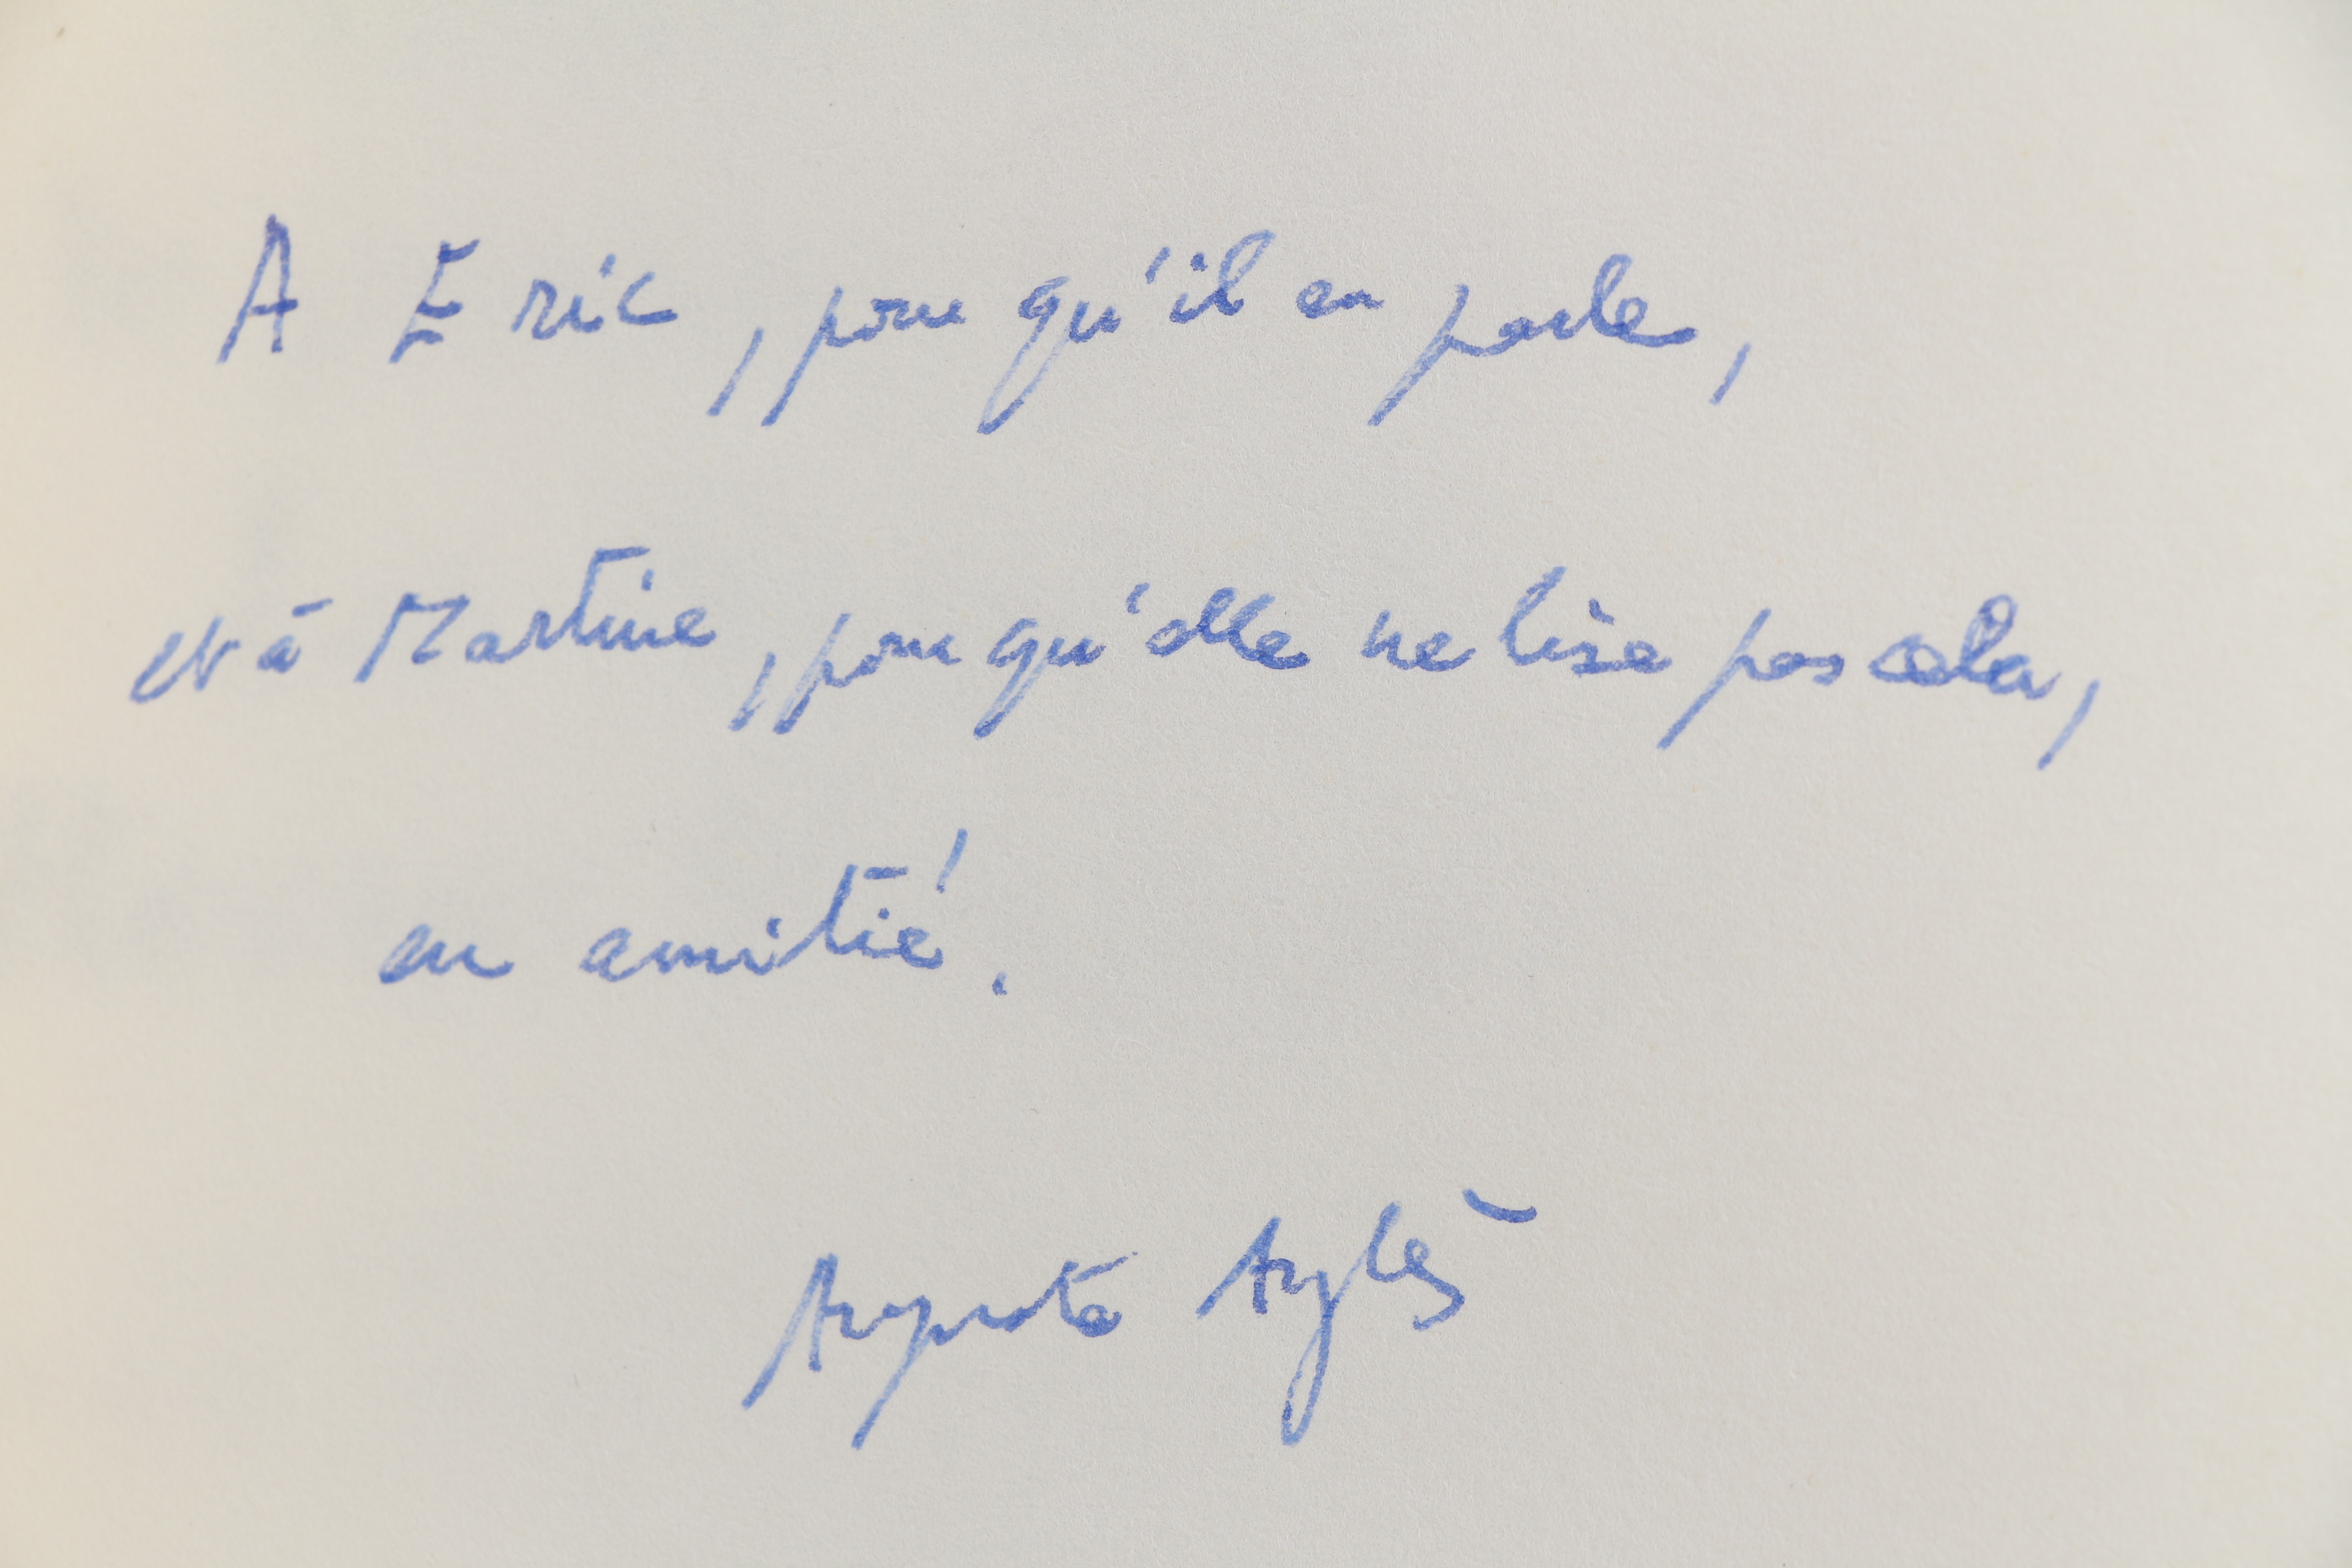 A Eric, pour qu'il en parle,
et à Martine, pour qu'elle ne lise pas cela,
en amitié.